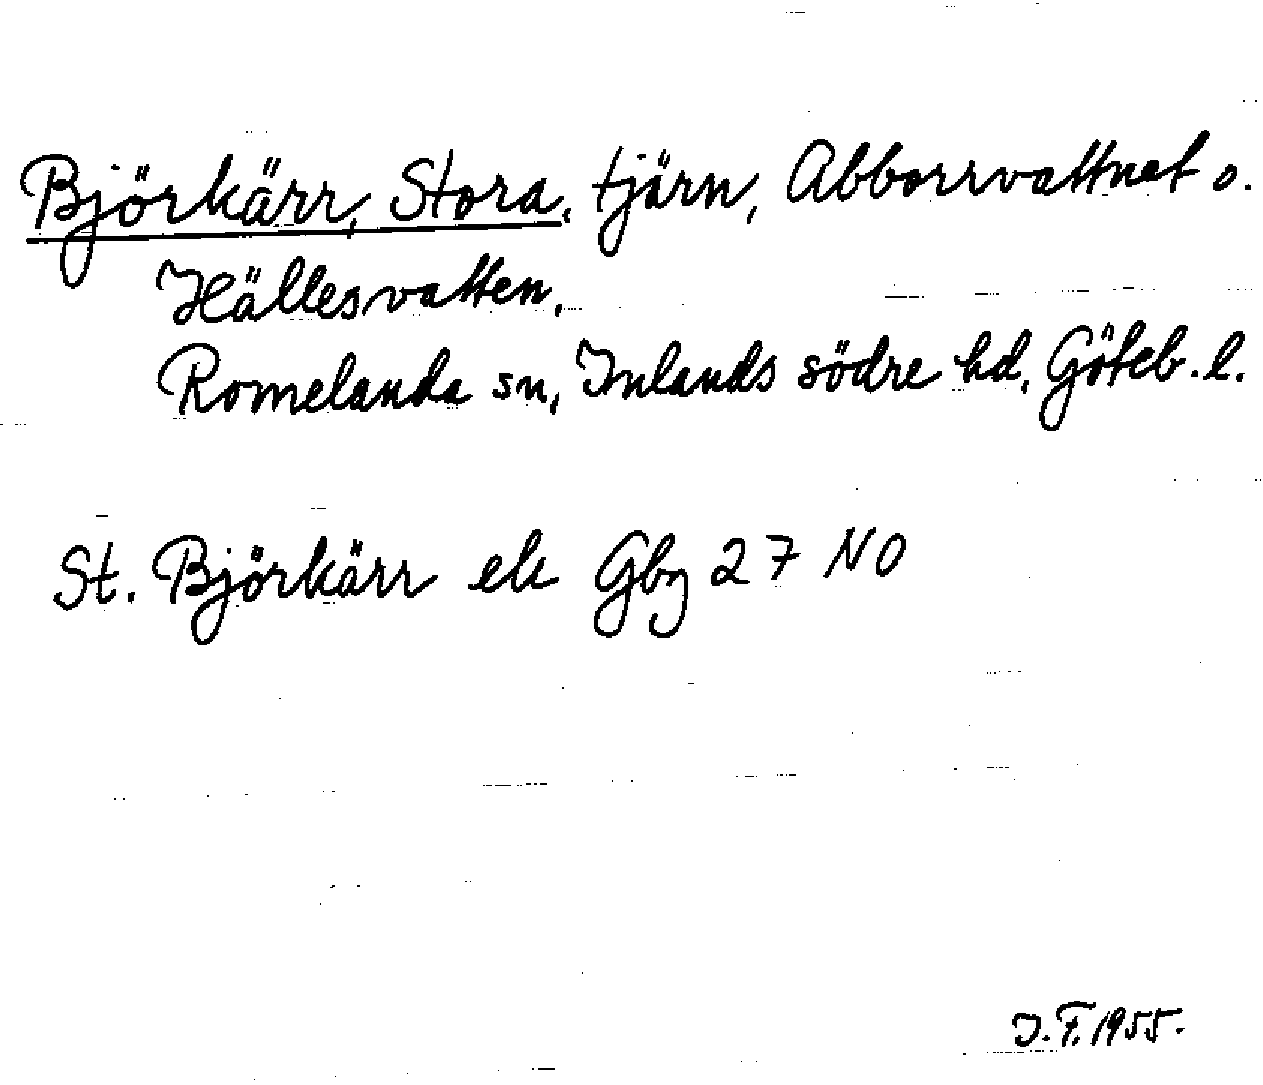 Björkärr, Stora, tjärn, Abborrvattnet o.
Hällesvatten,
Romelanda sn, Inlands södre hd, Göteb. l.
St. Björkärr ek Gbg 27 NO
J. F. 1955.